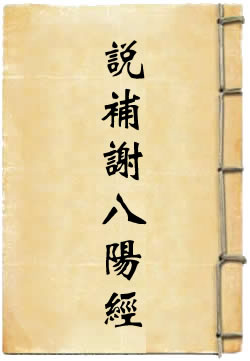 説補謝八陽經